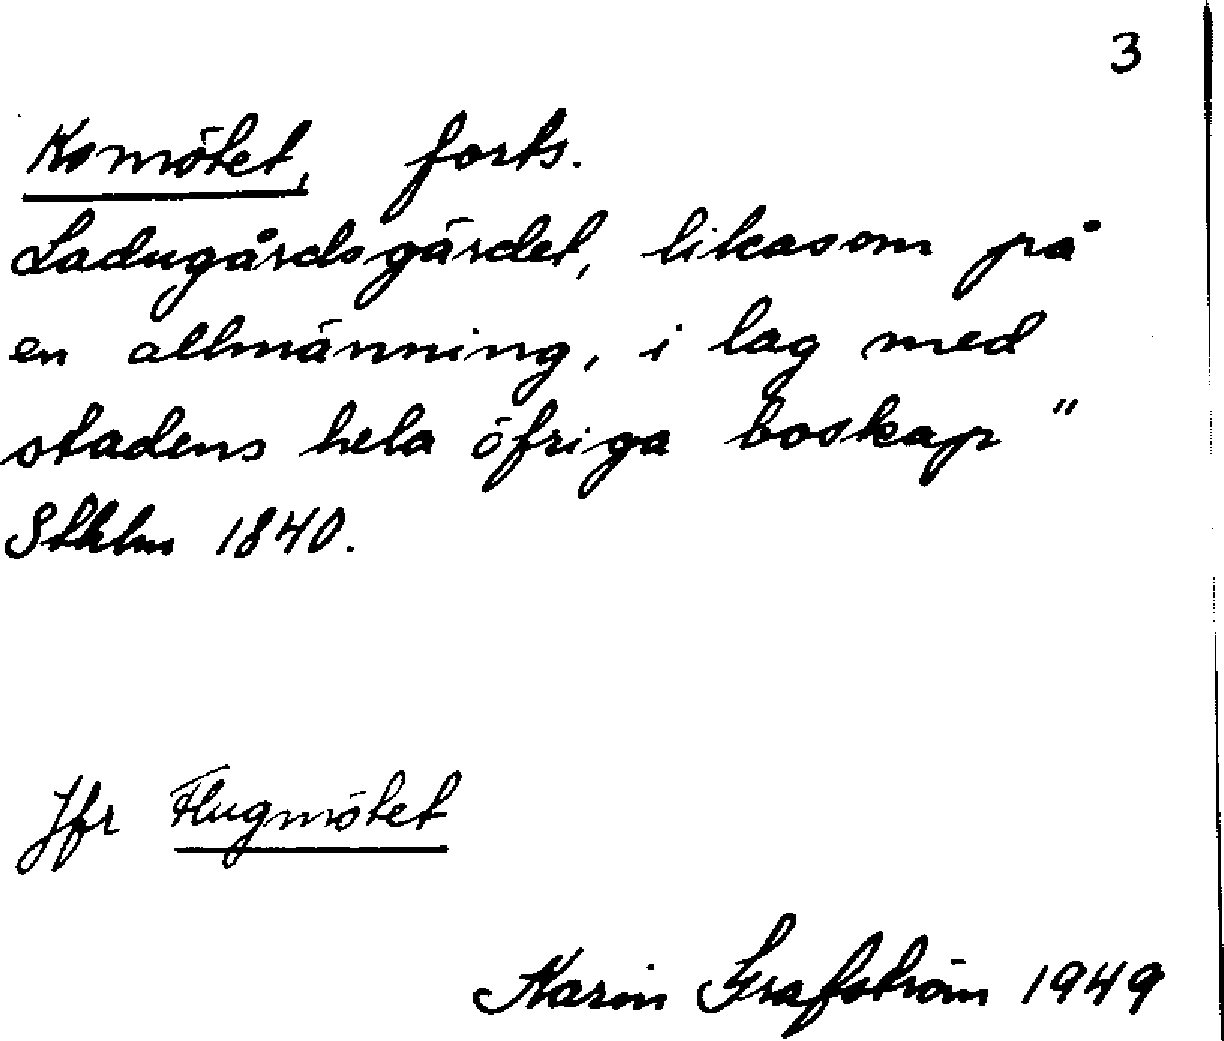 3
Komötet, forts.
Ladugårdsgärdet, likasom på
en allmänning, i lag med
stadens hela öfriga boskap"
Sthlm 1840.
Jfr Flugmötet
Karin Grafström 1949